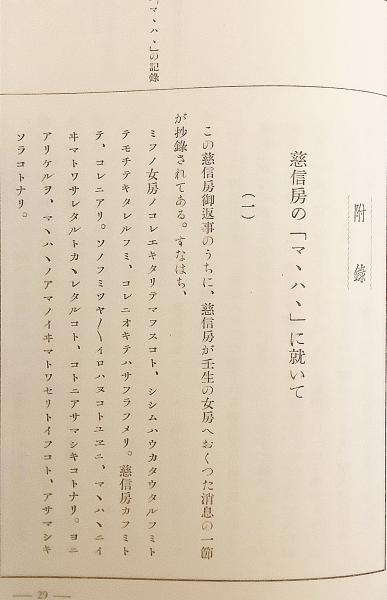 「マヽハヽ」の記錄
附錄
慈信房の「マヽハヽ」に就いて
(一)
この慈信房御返事のうちに、慈信房が壬生の女房へおくつた消息の一節
が抄錄されてある。すなはち、
ミフノ女房ノコレエキタリテマフスコト、シシムハウカタウタルフミト
テモチテキタレルフミ、コレニオキテハサフラフメリ。慈信房カフミト
テ、コレニアリ。ソノフミツヤ〳〵イロハヌコトユエニ、マヽハヽニイ
ヰマトワサレタルトカヽレタルコト、コトニアサマシキコトナリ。ヨニ
アリケルヲ、マヽハヽノアマノイヰマトワセリトイフコト、アサマシキ
ソラコトナリ。
— 29 —